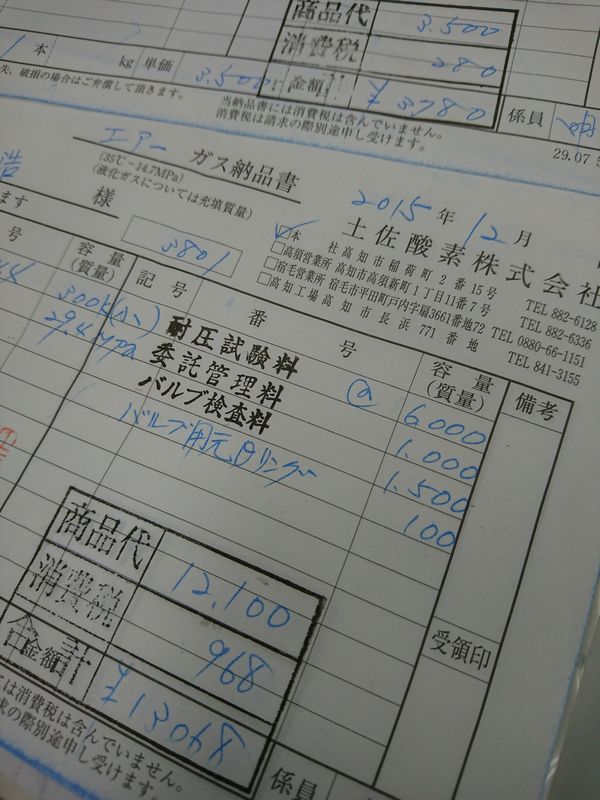 商品代 3.500
消費税 280
1本 kg 単価 3.500 金額 ¥3780 係員
失、破損の場合はご弁償して頂きます。
当納品書には消費税は含んでいません。
消費税は請求の際別途申し受けます。
29.07
エアー ガス納品書
(35℃-14.7MPa)
(液化ガスについては充填質量)
2015年 12月
浩 様
ます
3801
土佐酸素株式会社
本 社 高知市稲荷町2番15号 TEL 882-6128
□高須営業所 高知市高須新町1丁目11番7号 TEL 882-6336
□宿毛営業所 宿毛市平田町戸内字扇3661番地72 TEL 0880-66-1151
□高知工場 高知市長浜771番地 TEL 841-3155
号 容量(質量) 記号 番号 容量(質量) 備考
耐圧試験料 @ 6.000
29.4MPa 委託管理料 1.000
バルブ検査料 1.500
100
商品代 12,100
消費税 968
合計金額 ¥13068
受領印
には消費税は含んでいません。
請求の際別途申し受けます。
係員